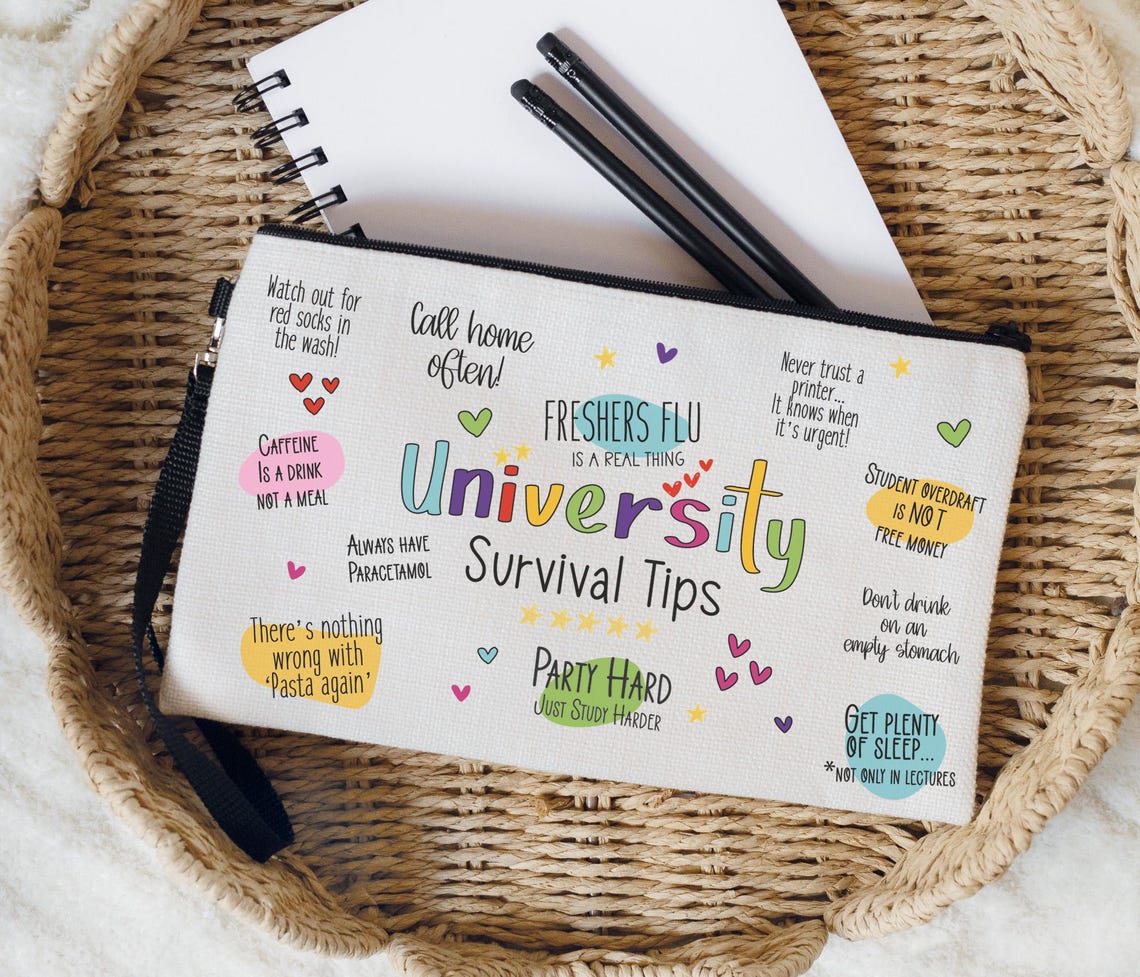 Watch out for
red socks in
the wash!
Call home
often!
Never trust a
printer...
It knows when
it's urgent!
FRESHERS FLU
IS A REAL THING
CAFFEINE
IS A DRINK
NOT A MEAL
University
Survival Tips
STUDENT OVERDRAFT
IS NOT
FREE MONEY
ALWAYS HAVE
PARACETAMOL
Don't drink
on an
empty stomach
There's nothing
wrong with
'Pasta again'
PARTY HARD
JUST STUDY HARDER
GET PLENTY
OF SLEEP...
*NOT ONLY IN LECTURES